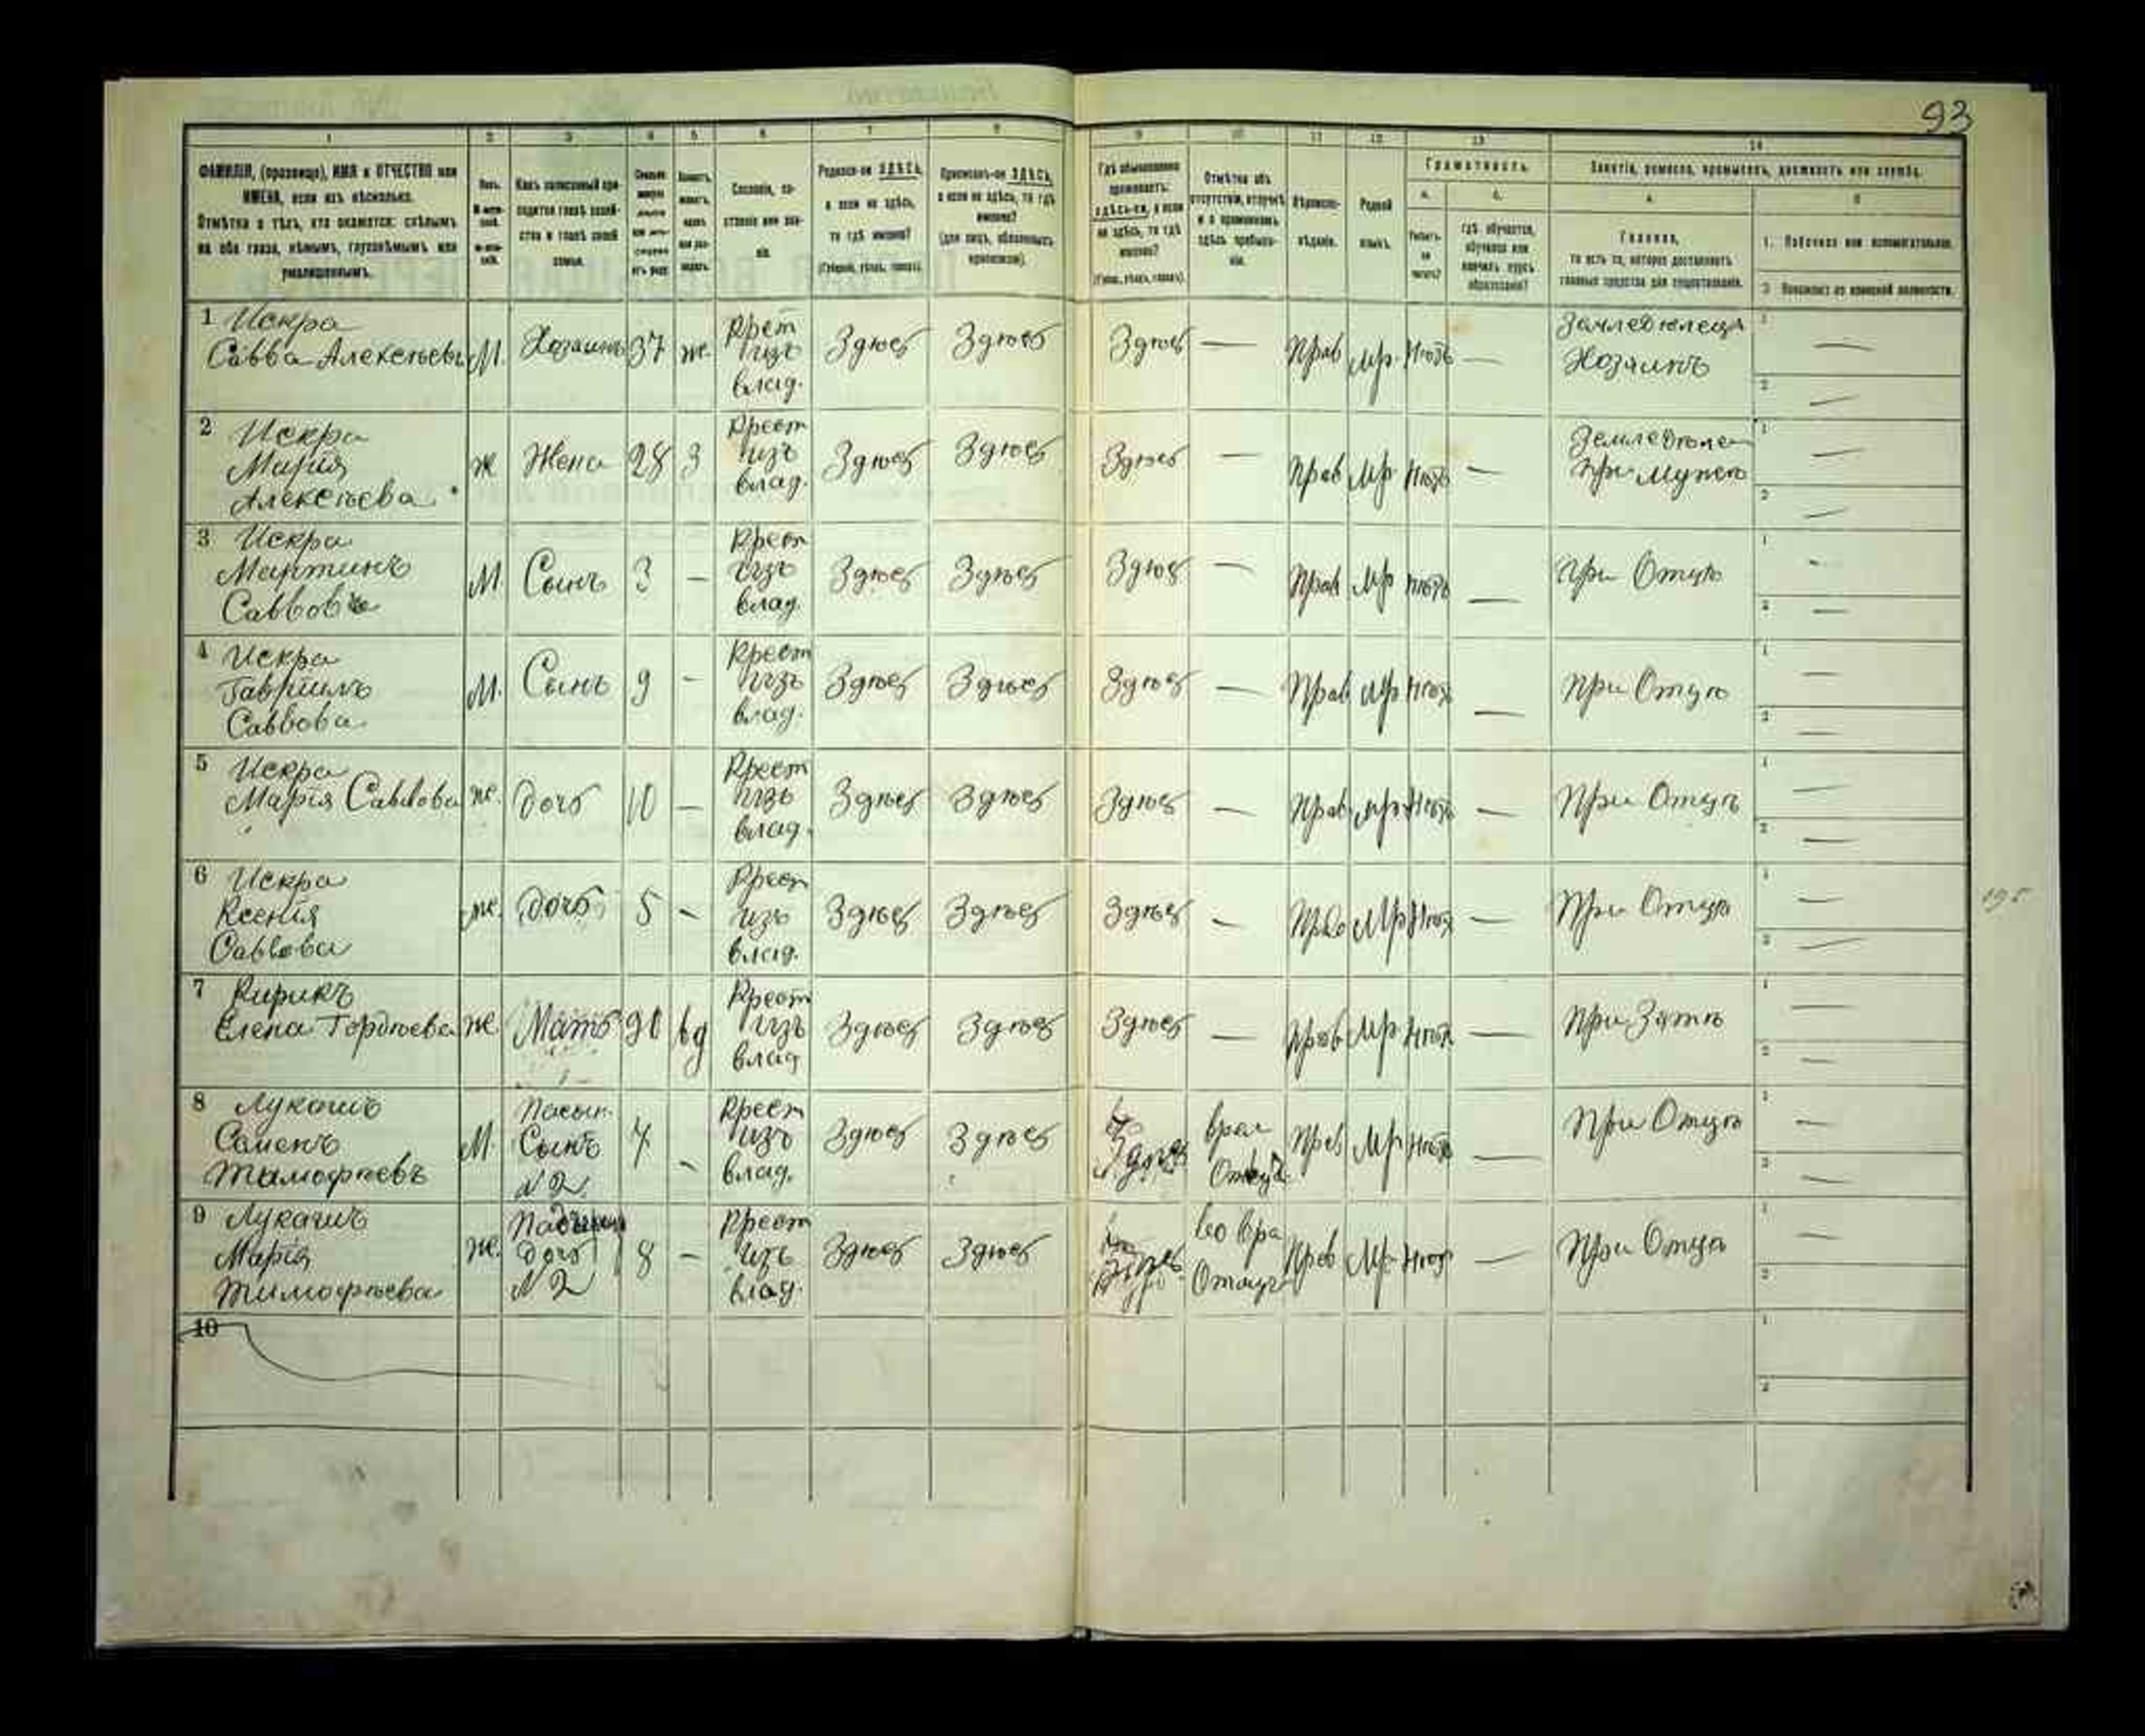 93
1 2 3 4 5 6 7 8 9 10 11 12 13 14
ФАМИЛІЯ, (прозвище), ИМЯ и ОТЧЕСТВО или
ИМЕНА, если ихъ нѣсколько.
Отмѣтка о тѣхъ, кто окажется: слѣпымъ
на оба глаза, нѣмымъ, глухонѣмымъ или
умалишеннымъ.
Полъ.
Какъ записанный при-
ходится главѣ хозяй-
ства и главѣ своей
семьи.
Сословіе, со-
стояніе или зва-
ніе.
Родился-ли ЗДѢСЬ,
а если не здѣсь,
то гдѣ именно?
(Губернія, уѣздъ, городъ).
Приписанъ-ли ЗДѢСЬ,
а если не здѣсь, то гдѣ
именно?
(для лицъ, обязанныхъ
припискою).
Гдѣ обыкновенно
проживаетъ:
здѣсь-ли, а если
не здѣсь, то гдѣ
именно?
(Губер., уѣздъ, городъ).
Отмѣтка объ
отсутствіи, отлучкѣ
и о временномъ
здѣсь пребыва-
ніи.
Вѣроиспо-
вѣданіе.
Родной
языкъ.
Грамотность.
а. б.
Умѣетъ-
ли
читать?
гдѣ обучается,
обучался или
кончилъ курсъ
образованія?
Занятіе, ремесло, промыселъ, должность или служба.
Главное,
то есть то, которое доставляетъ
главныя средства для существованія.
1. Побочное или вспомогательное.
2. Положеніе по воинской повинности.
1 Искра
Савва Алексѣевъ М. Хозяинъ 37 ж. Крет изъ влад. Здѣсь Здѣсь Здѣсь — Прав Мр. Нѣтъ — Земледѣлецъ Хозяинъ 1 — 2 —
2 Искра
Марія
Алексѣева ж Жена 28 з Крест изъ влад. Здѣсь Здѣсь Здѣсь — Прав Мр Нѣтъ — при мужѣ 1 — 2 —
3 Искра
Мартинъ
М. Сынъ 3 — Крест изъ влад. Здѣсь Здѣсь Здѣсь — Прав Мр Нѣтъ — при Отцѣ 1 - 2 —
4 Искра
Гавріилъ
Саввова М. Сынъ 9 - Крест изъ влад. Здѣсь Здѣсь Здѣсь — Прав Мр Нѣтъ — при Отцѣ 1 — 2 —
5 Искра
Марія Саввова ж. дочь 10 — Крест изъ влад. Здѣсь Здѣсь Здѣсь — Прав Мр Нѣтъ — При Отцѣ 1 — 2 —
6 Искра
Ксенія
Саввова ж. дочь 5 - Крест изъ влад. Здѣсь Здѣсь Здѣсь — Прав Мр Нѣт — При Отцѣ 1 — 2 —
7 Кирикъ
Елена Гордѣева ж. Мать 90 вд Крест изъ влад Здѣсь Здѣсь Здѣсь — Прав Мр Нѣт — При Зятѣ 1 — 2 —
8 Лукашъ
Семенъ
Тимофѣевъ М. Пасын. Сынъ N 2 - Крест изъ влад. Здѣсь Здѣсь Прав Мр Нѣтъ — При Отцѣ 1 — 2 —
9 Лукашъ
Марія
Тимофѣева ж. дочь N 2 8 — Крест изъ влад. Здѣсь Здѣсь Прав Мр Нѣт — При Отцѣ 1 — 2 —
10 1 2